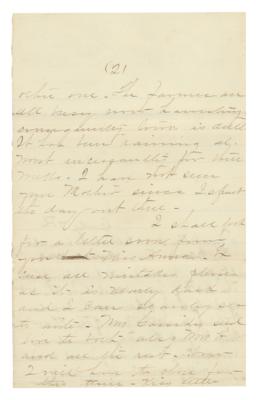 (2)
other one. The farmers are
all busy now harvesting
consequently town is dull
It has been raining al-
most incessantly for three
weeks. I have not seen
your Mother since I spent
the day out there.
I shall look
for a letter soon from
you
all mistakes please
as it is nearly dark
and I can scarcely see
to write. Mrs. Cassidy sends
love to both
and all the rest.
I will have to close for
this time.